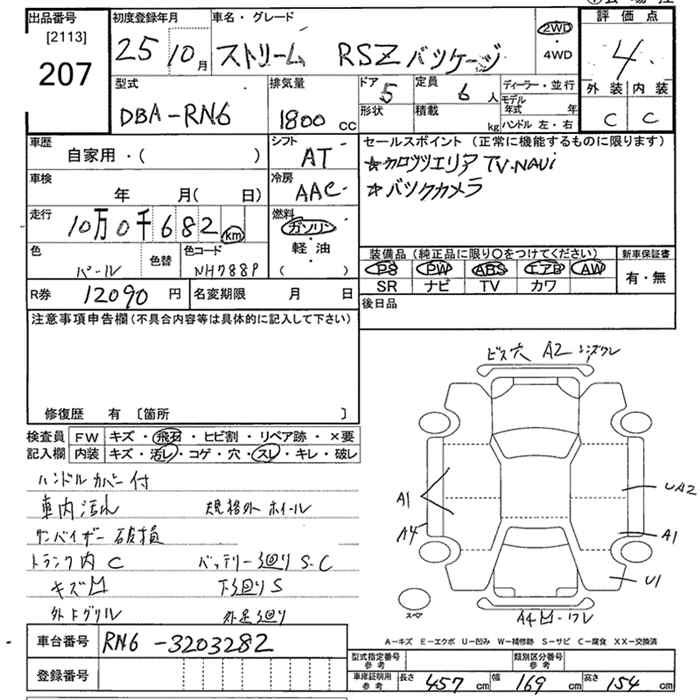 出品番号 初度登録年月 車名・グレード 評価点
[2113]
207 25 10月 ストリーム RSZ パッケージ 2WD・4WD 4
外装 内装
C C
型式 排気量 ドア 定員 ディーラー・並行
DBA-RN6 1800cc 5 6人 モデル年式 年
形状 積載 kg ハンドル 左・右
車歴 シフト セールスポイント (正常に機能するものに限ります)
自家用・( ) AT ★カロッツエリア TV.NAVi
車検 冷房 ★バックカメラ
年 月(日) AAC
走行 燃料
10万0千682km ガソリン
軽油
( )
色 色替 色コード
パール NH788P
装備品 (純正品に限り〇をつけてください) 新車保証書
PS PW ABS エアB AW 有・無
SR ナビ TV カワ
R券 12090円 名変期限 月 日
後日品
注意事項申告欄(不具合内容等は具体的に記入して下さい)
修復歴 有 [箇所 ]
検査員記入欄 FW キズ・飛石・ヒビ割・リペア跡・×要
内装 キズ・汚レ・コゲ・穴・スレ・キレ・破レ
ハンドルカバー付
車内汚れ 規格外ホイール
サンバイザー破損
トランク内 C バッテリー廻り S.C
キズ凹 下廻り S
外トグリル 外足廻り
ビス穴 A2
A1
A4
UA2
A1
U1
スペア
A4凹・ワレ
A-キズ E-エクボ U-凹み W-補修跡 S-サビ C-腐食 XX-交換済
車台番号 RN6-3203282
登録番号
型式指定番号 参考 類別区分番号 参考
車庫証明用 参考 長さ 457cm 幅 169cm 高さ 154cm